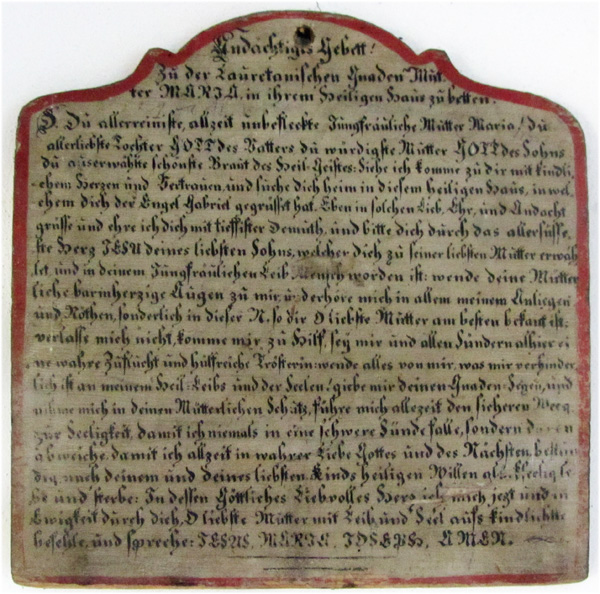 Andächtiges Gebett!
Zu der Lauretanischen Gnaden Mut-
ter MARIA, in ihrem Heiligen Haus zu betten.
O Du allerreiniste, allzeit unbefleckte Jungfräuliche Mutter Maria! du
allerliebste Tochter GOTT des Vatters du würdigste Mutter GOTT des Sohns
du ausserwählte schönste Braut des Heil. Geistes: Siehe ich komme zu dir mit kindli-
chem Herzen und Vertrauen, und suche dich heim in diesem heiligen Haus, in wel-
chem dich der Engel Gabriel gegrüsset hat. Eben in solchen Lieb, Ehr, und Andacht
grüsse und ehre ich dich mit tieffister Demuth, und bitte dich durch das allersüsse-
ste Herz JESU deines liebsten Sohns, welcher dich zu seiner liebsten Mutter erwäh-
let, und in deinem Jungfräulichen Leib Mensch worden ist: wende deine Mütter-
liche barmherzige Augen zu mir, u: derhöre mich in allem meinem Anliegen
und Nöthen, sonderlich in dieser N. so dir O liebste Mutter am besten bekant ist:
verlasse mich nicht, komme mir zu Hilf, sey mir und allen Sündern alhier ei-
ne wahre Zuflucht und hülfreiche Trösterin: wende alles von mir, was mir verhinder-
lich ist an meinem Heil: Leibs und der Seelen! giebe mir deinen Gnaden-Segen, und
nihme mich in deinen Mütterlichen Schutz, führe mich allezeit den sicheren Weeg
zur Seeligkeit, damit ich niemals in eine schwere Sünde falle, sondern davon
abweiche, damit ich allzeit in wahrer Liebe Gottes und des Nächsten, bestän-
dig nach deinem und deines liebsten Kinds heiligen Willen glückseelig le-
be und sterbe: In dessen Göttliches Liebvolles Herz ich mich jezt und in
Ewigkeit durch dich, O liebste Mutter mit Leib und Seel aufs kindlichste
befehle, und spreche: JESUS, MARIA, JOSEPH, AMEN.